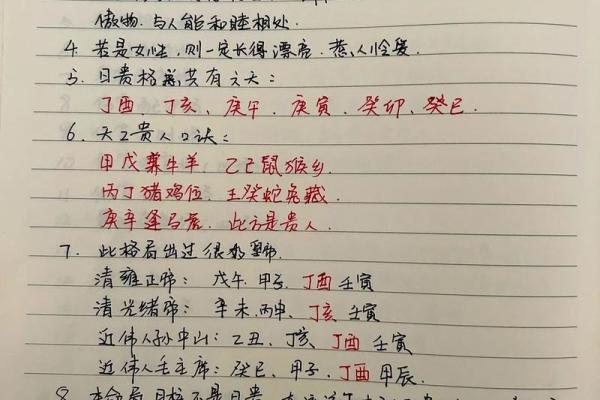 傲物.与人能和睦相处.
4. 若是女性,则一定长得漂亮.惹人怜爱.
5. 日贵格总共有六天:
丁酉 丁亥、庚午、庚寅、癸卯、癸巳.
6. 天乙贵人口诀:
甲戊兼牛羊、乙己鼠猴乡.
丙丁猪鸡位、壬癸蛇兔藏.
庚辛逢马虎、此方是贵人.
7. 此格局出过很多帝
清雍正帝: 戊午.甲子.丁酉 壬寅
清光绪帝: 辛未.丙申、丁亥 壬寅
近伟人孙中山:乙丑、丁亥 丁酉 壬寅
近伟人毛主席:癸巳、甲子、丁酉 甲辰.
8. 本命局日柱不是日贵